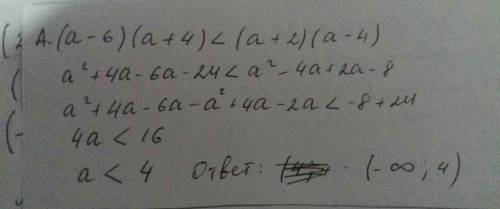 А. (a-6)(a+4)<(a+2)(a-4)
a²+4a-6a-24<a²-4a+2a-8
a²+4a-6a-a²+4a-2a<-8+24
4a<16
a<4 Ответ: (-∞; 4)